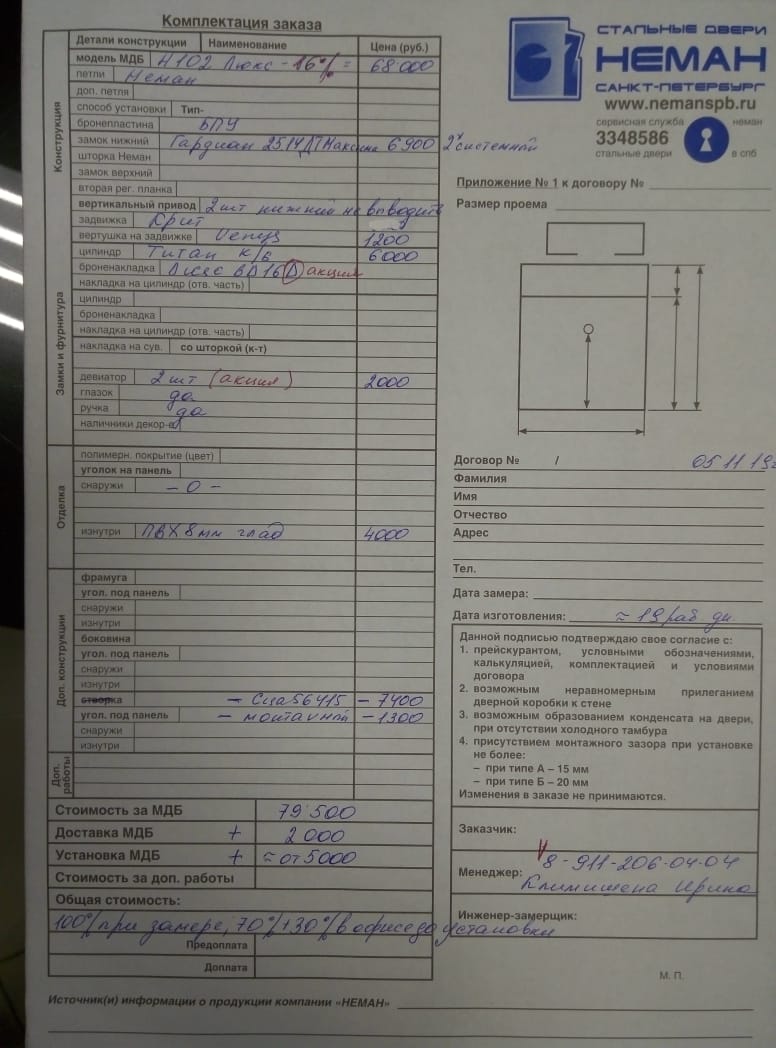 Комплектация заказа
Детали конструкции Наименование Цена (руб.)
Конструкция
модель МДБ Н102 Люкс - 16% = 68000
петли Неман
доп. петля
способ установки Тип-
бронепластина БПУ
замок нижний Гардиан 2514 ДТ Максима 6900 2х системной
шторка Неман
замок верхний
вторая рег. планка
вертикальный привод 2 шт нижний не выводить
Замки и фурнитура
задвижка Крит
вертушка на задвижке Venus 1200
цилиндр Титан к/в 6000
броненакладка Дисес ВД16 акция
накладка на цилиндр (отв. часть)
цилиндр
броненакладка
накладка на цилиндр (отв. часть)
накладка на сув. со шторкой (к-т)
девиатор 2 шт (акция) 2000
глазок да
ручка да
наличники декор-е
Отделка
полимерн. покрытие (цвет)
уголок на панель
снаружи - 0 -
изнутри ПВХ 8мм глад 4000
Доп. конструкции
фрамуга
угол. под панель
снаружи
изнутри
боковина
угол. под панель
снаружи
изнутри
створка - Cisa 56415 - 7400
угол. под панель - монтажной - 1300
снаружи
изнутри
Доп. работы
Стоимость за МДБ 79'500
Доставка МДБ + 2000
Установка МДБ + ≈ от 5000
Стоимость за доп. работы
Общая стоимость:
100% при замере, 70%+30% в офисе до установки
Предоплата
Доплата
Источник(и) информации о продукции компании «НЕМАН»
СТАЛЬНЫЕ ДВЕРИ
НЕМАН
САНКТ-ПЕТЕРБУРГ
www.nemanspb.ru
сервисная служба неман
3348586
стальные двери в спб
Приложение № 1 к договору №
Размер проема
Договор № / 05 11 19г
Фамилия
Имя
Отчество
Адрес
Тел.
Дата замера:
Дата изготовления: ≈ 19 раб дн.
Данной подписью подтверждаю свое согласие с:
1. прейскурантом, условными обозначениями,
калькуляцией, комплектацией и условиями
договора
2. возможным неравномерным прилеганием
дверной коробки к стене
3. возможным образованием конденсата на двери,
при отсутствии холодного тамбура
4. присутствием монтажного зазора при установке
не более:
– при типе А – 15 мм
– при типе Б – 20 мм
Изменения в заказе не принимаются.
Заказчик:
8-911-206-04-04
Менеджер: Климишена Ирина
Инженер-замерщик:
М. П.